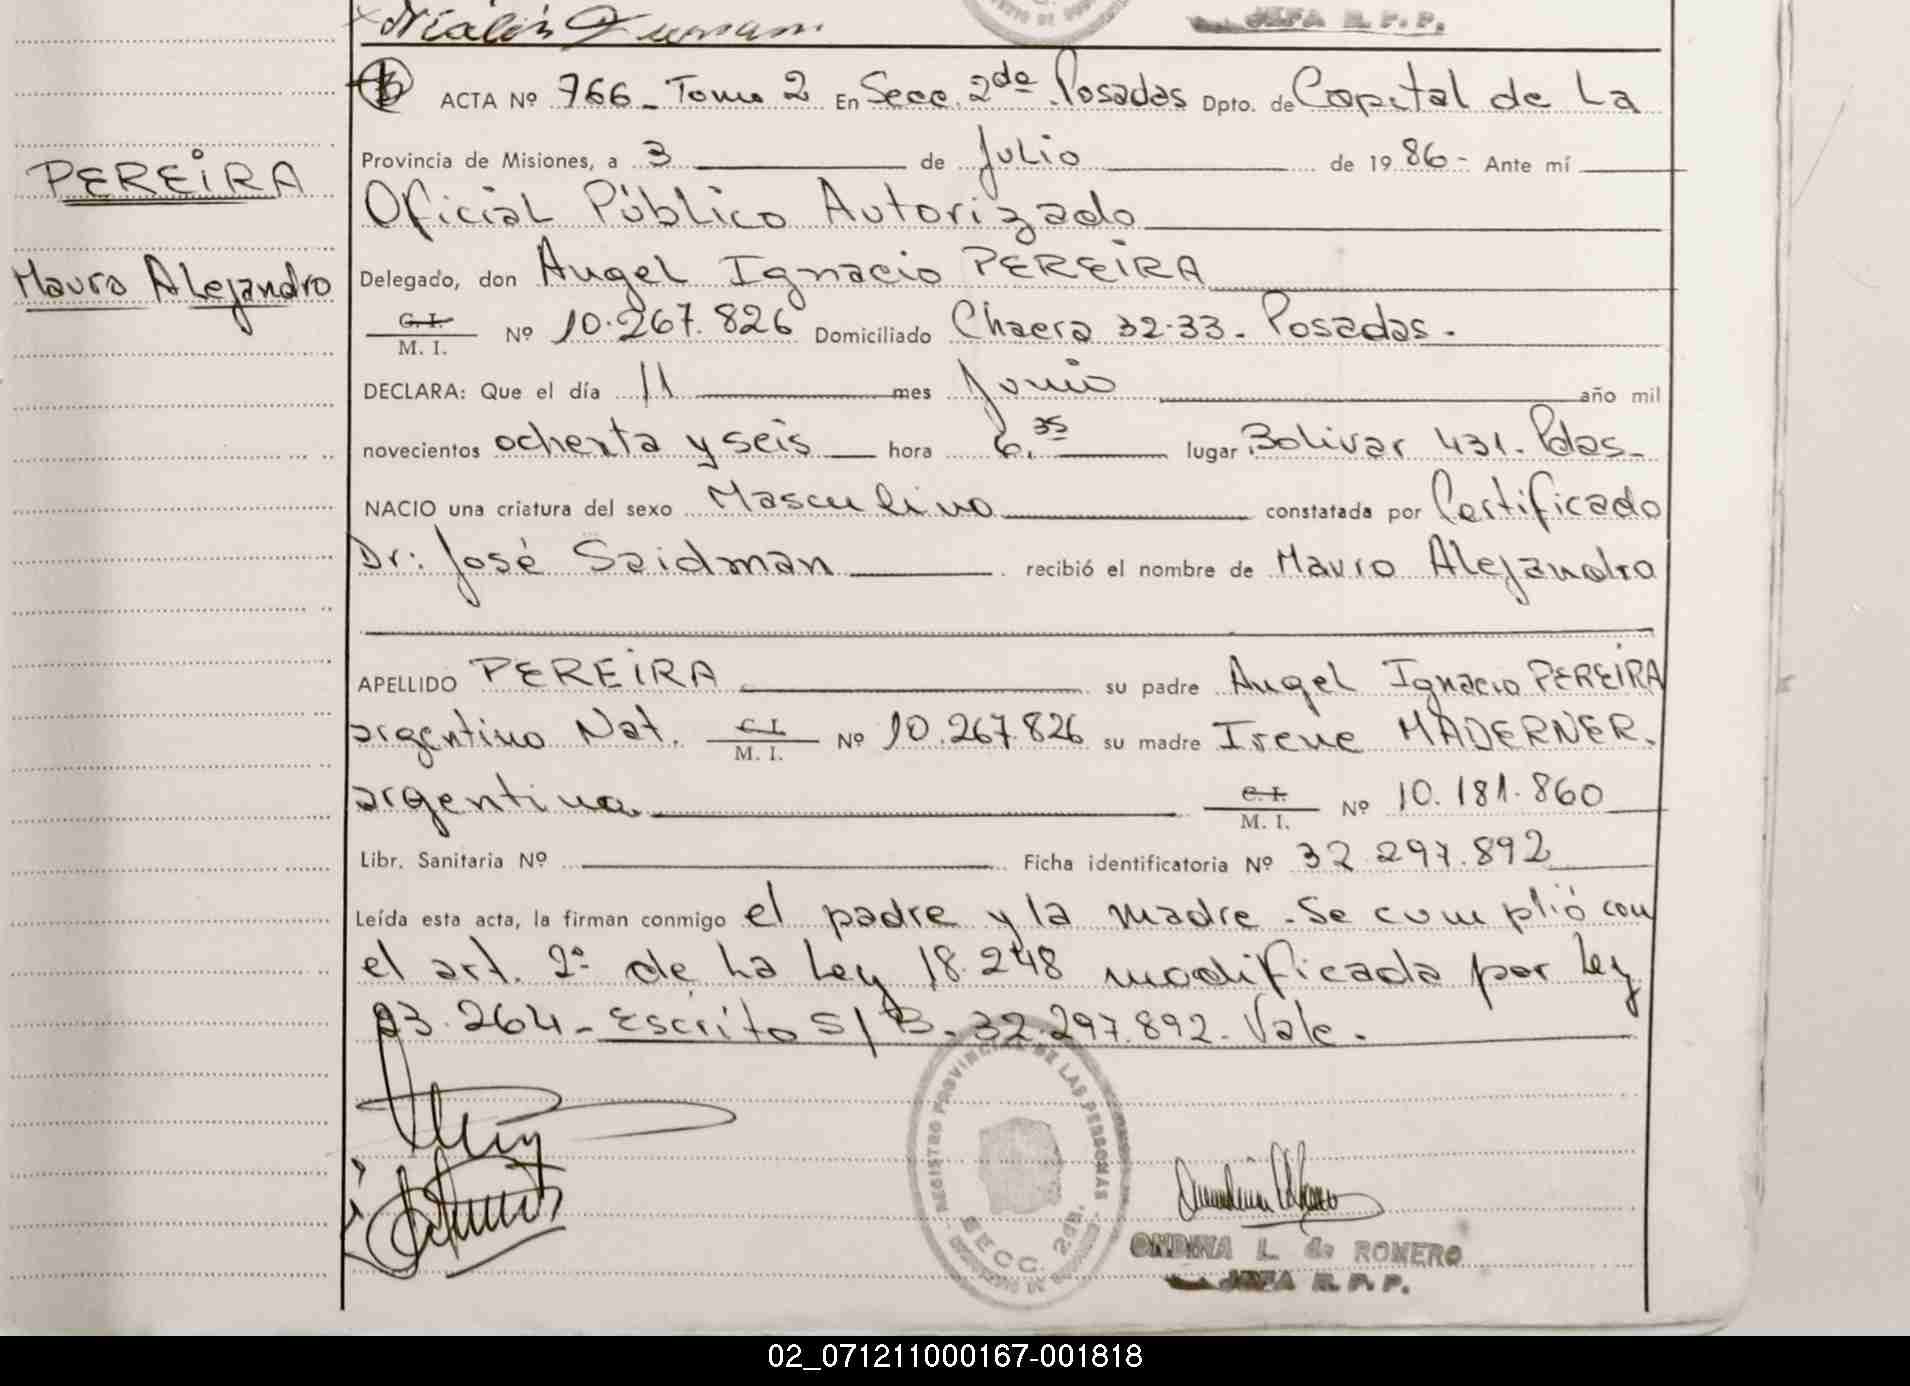 JEFA R. P. P.
ACTA Nº 766 - Tomo 2 En Secc. 2da Posadas Dpto. de Capital de La
Provincia de Misiones, a 3 de Julio de 1986- Ante mí
PEREIRA
Oficial Público Autorizado
Mauro Alejandro
Delegado, don Angel Ignacio PEREIRA
C. I. M. I. Nº 10.267.826 Domiciliado Chacra 32-33- Posadas.
DECLARA: Que el día 11 mes Junio año mil
novecientos ochenta y seis hora 6,35 lugar Bolivar 431- Pdas-
NACIO una criatura del sexo Masculino constatada por Certificado
Dr: José Saidman recibió el nombre de Mauro Alejandro
APELLIDO PEREIRA su padre Angel Ignacio PEREIRA
argentino Nat. C. I. M. I. Nº 10.267.826 su madre Irene MADERNER.
argentina C. I. M. I. Nº 10.181.860
Libr. Sanitaria Nº Ficha identificatoria Nº 32.297.892
Leída esta acta, la firman conmigo el padre y la madre -Se cumplió con
el art. 2º de La Ley 18.248 modificada por Ley
23.264- Escrito S/ B- 32.297.892- Vale.
REGISTRO PROVINCIAL DE LAS PERSONAS
SECC. 2da.
ONDINA L. de ROMERO
JEFA R. P. P.
02_071211000167-001818